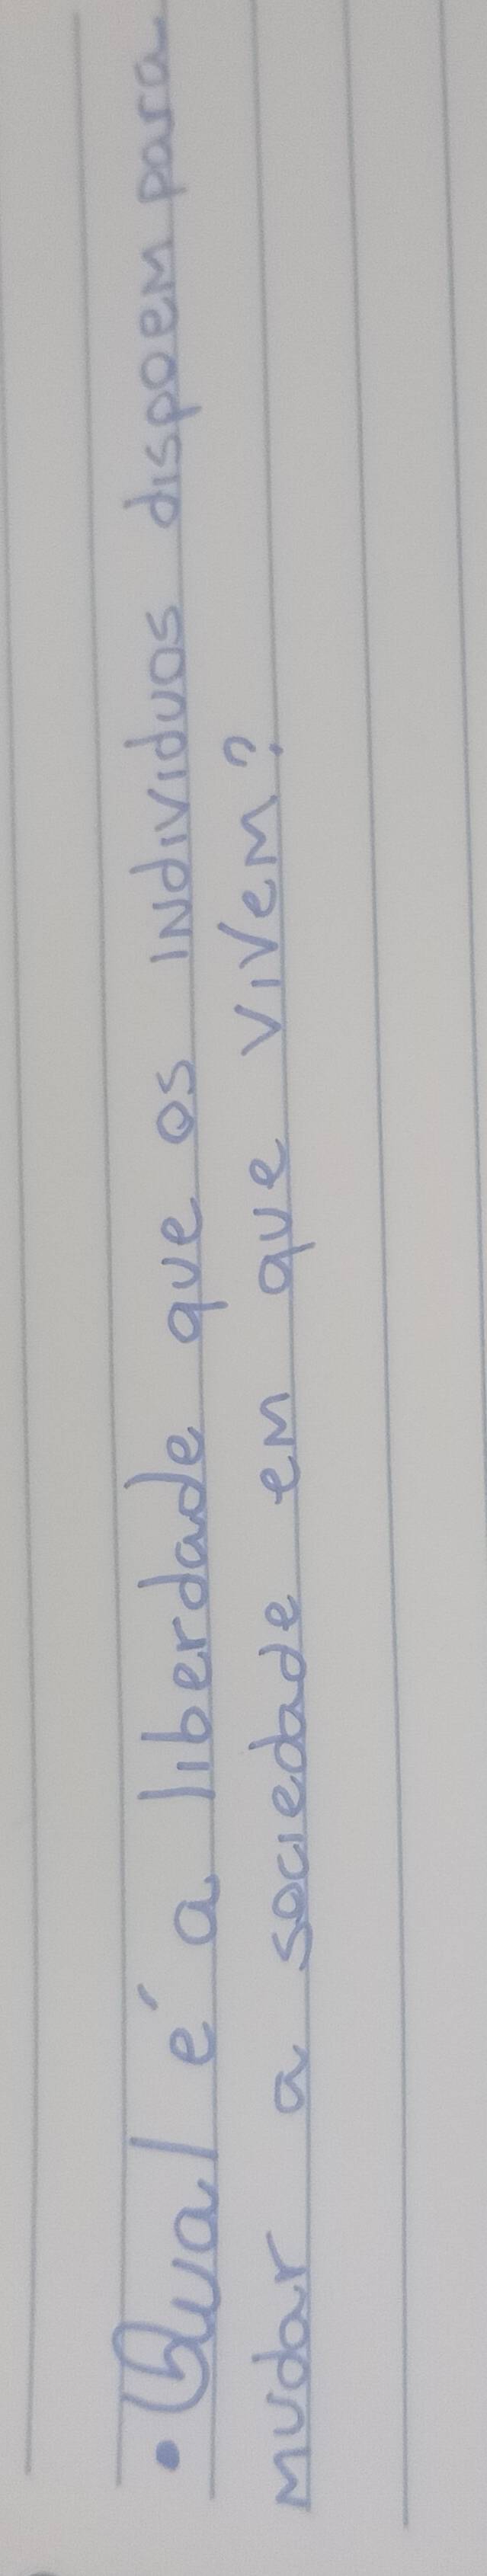 • Qual é a liberdade que os individuos dispoem para
mudar a sociedade em que vivem?